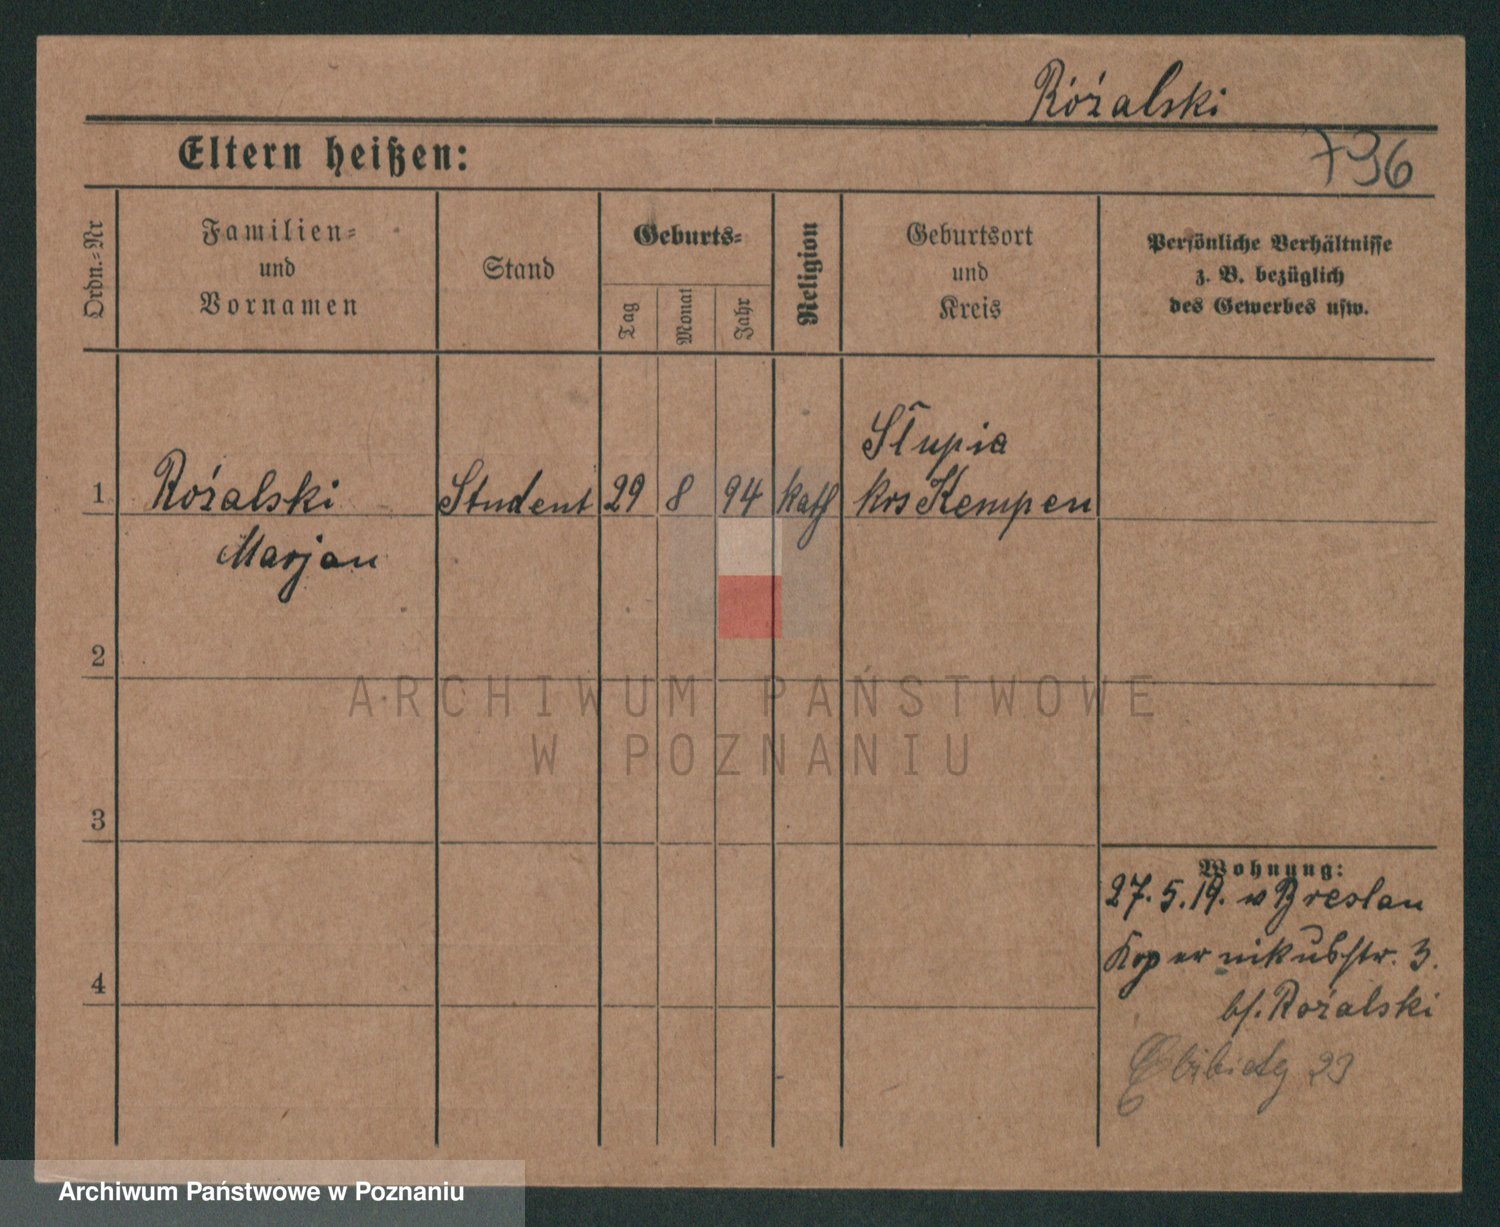 Różalski
Eltern heißen:
796
Ordn.-Nr
Familien-
und
Vornamen
Stand
Geburts-
Tag
Monat
Jahr
Religion
Geburtsort
und
Kreis
Persönliche Verhältnisse
z. B. bezüglich
des Gewerbes usw.
1
Rożalski
Marjan
Student
29
8
94
kath
Słupia
Krs Kempen
2
3
4
Wohnung:
27.5.19. v Breslau
Kopernikusstr. 3.
b/. Rożalski
23
ARCHIWUM PAŃSTWOWE
W POZNANIU
Archiwum Państwowe w Poznaniu